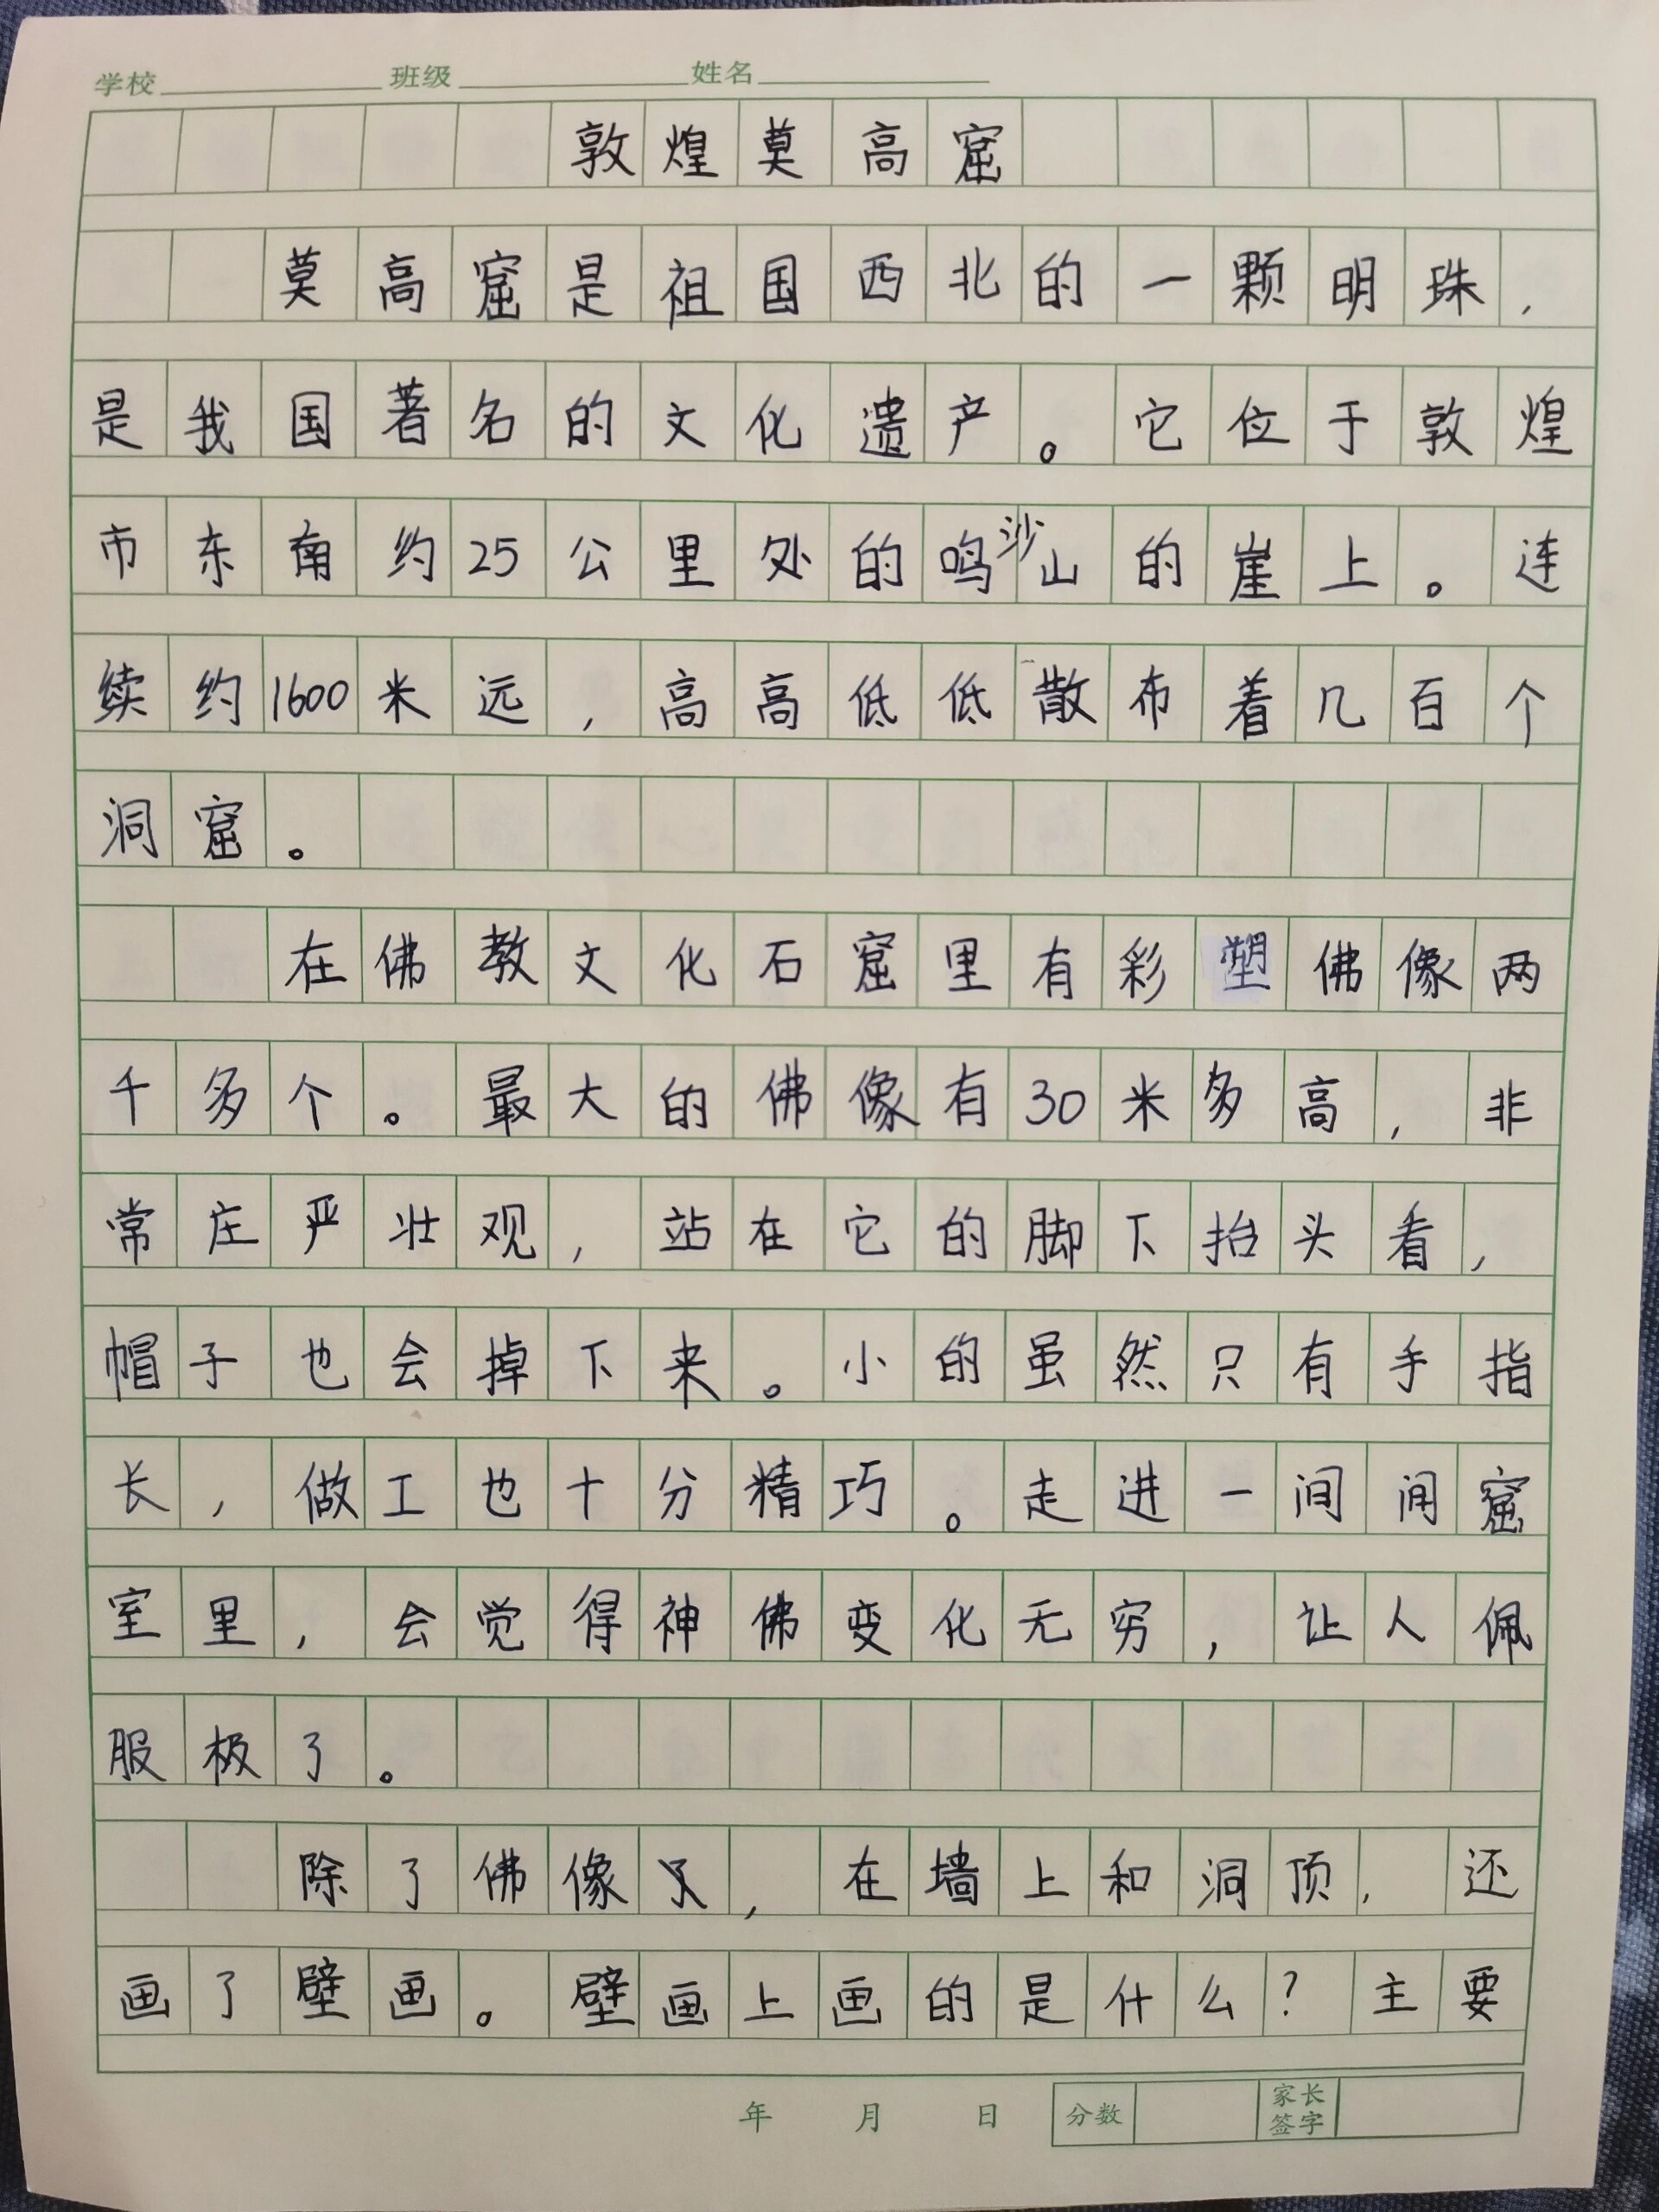 学校 班级 姓名
敦煌莫高窟
莫高窟是祖国西北的一颗明珠，
是我国著名的文化遗产。它位于敦煌
市东南约25公里处的鸣沙山的崖上。连
续约1600米远，高高低低散布着几百个
洞窟。
在佛教文化石窟里有彩塑佛像两
千多个。最大的佛像有30米多高，非
常庄严壮观，站在它的脚下抬头看，
帽子也会掉下来。小的虽然只有手指
长，做工也十分精巧。走进一间间窟
室里，会觉得神佛变化无穷，让人佩
服极了。
除了佛像，在墙上和洞顶，还
画了壁画。壁画上画的是什么？主要
年 月 日 分数 家长签字